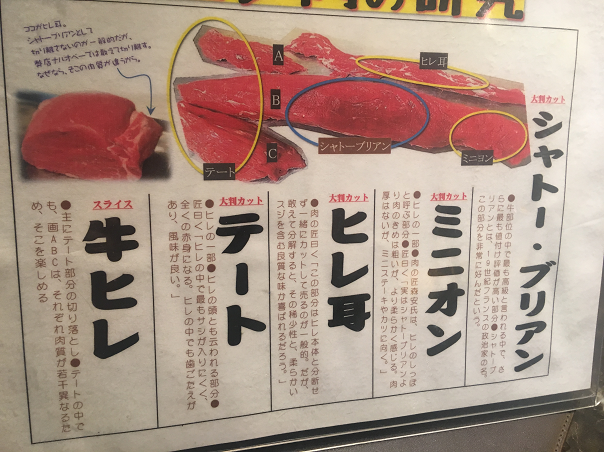 ココがヒレ耳。
A
B
C
ヒレ耳
シャトーブリアン
ミニヨン
テート
大判カット
シャトー・ブリアン
●牛部位の中で最も高級と言われる中で、さ
らに最も値付け評価が高い部分●シャトーブ
リアンとは19世紀フランスの政治家の名。
この部分を非常に好んだという。
大判カット
ミニオン
●ヒレの一部●肉の匠森安氏は、ヒレのしっぽ
と呼ぶ部分●匠曰く「実はシャトーブリアンよ
り肉のきめは粗いが、より柔らかく感じる。肉
厚はないが、ミニステーキやカツに向く。」
大判カット
ヒレ耳
●肉の匠曰く「この部分はヒレ本体と分断せ
ず一緒にカットして売るのが一般的。だが、
敢えて分解すると、その稀少性と、柔らかい
スジを含む良質な味が喜ばれるだろう。」
大判カット
テート
●ヒレの一部●ヒレの頭とも云われる部分●
匠曰く「ヒレの中で最もサシが入りにくく、
全くの赤身になる。ヒレの中でも歯ごたえが
あり、風味が良い。」
スライス
牛ヒレ
●主にテート部分の切り落とし●テートの中で
も、画ABCは、それぞれ肉質が若干異なるた
め、そこを楽しめる